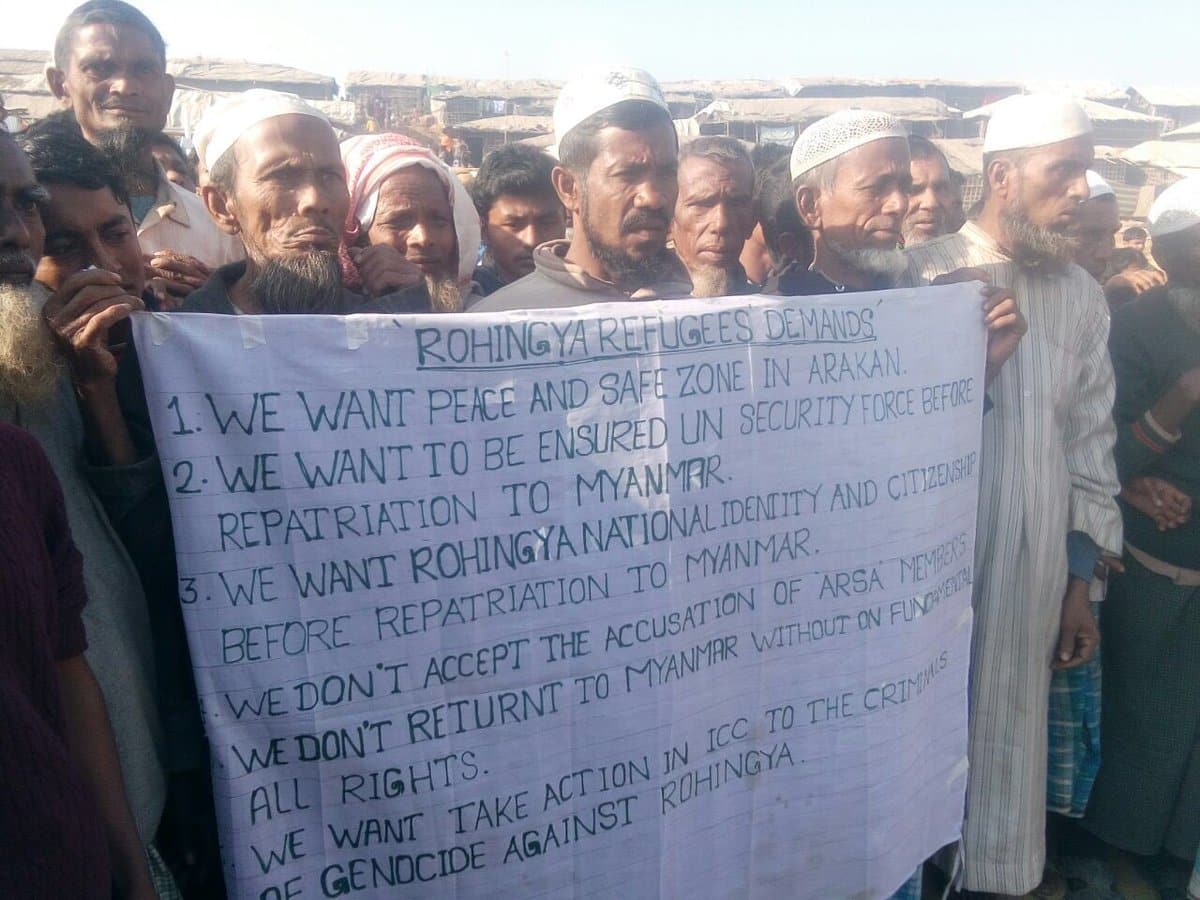 'ROHINGYA REFUGEES DEMANDS'
1. WE WANT PEACE AND SAFE ZONE IN ARAKAN.
2. WE WANT TO BE ENSURED UN SECURITY FORCE BEFORE
REPATRIATION TO MYANMAR.
3. WE WANT ROHINGYA NATIONAL IDENTITY AND CITIZENSHIP
BEFORE REPATRIATION TO MYANMAR.
WE DON'T ACCEPT THE ACCUSATION OF 'ARSA' MEMBERS
WE DON'T RETURNT TO MYANMAR WITHOUT ON FUNDAMENTAL
ALL RIGHTS.
WE WANT TAKE ACTION IN ICC TO THE CRIMINALS
OF GENOCIDE AGAINST ROHINGYA.